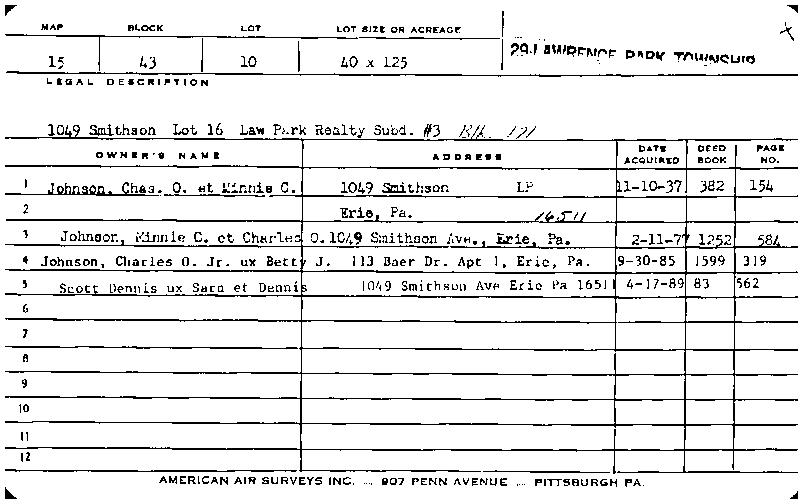 MAP BLOCK LOT LOT SIZE OR ACREAGE
29-LAWRENCE PARK TOWNSHIP
15 43 10 40 x 125
LEGAL DESCRIPTION
1049 Smithson Lot 16 Law Park Realty Subd. #3 Blk. 121
OWNER'S NAME ADDRESS DATE ACQUIRED DEED BOOK PAGE NO.
1 Johnson, Chas. O. et Minnie C. 1049 Smithson LP 11-10-37 382 154
2 Erie, Pa. 16511
3 Johnson, Minnie C. et Charles O. 1049 Smithson Ave., Erie, Pa. 2-11-77 1252 584
4 Johnson, Charles O. Jr. ux Betty J. 113 Baer Dr. Apt 1, Erie, Pa. 9-30-85 1599 319
5 Scott Dennis ux Sara et Dennis 1049 Smithson Ave Erie Pa 16511 4-17-89 83 562
6
7
8
9
10
11
12
AMERICAN AIR SURVEYS INC. — 907 PENN AVENUE — PITTSBURGH PA.